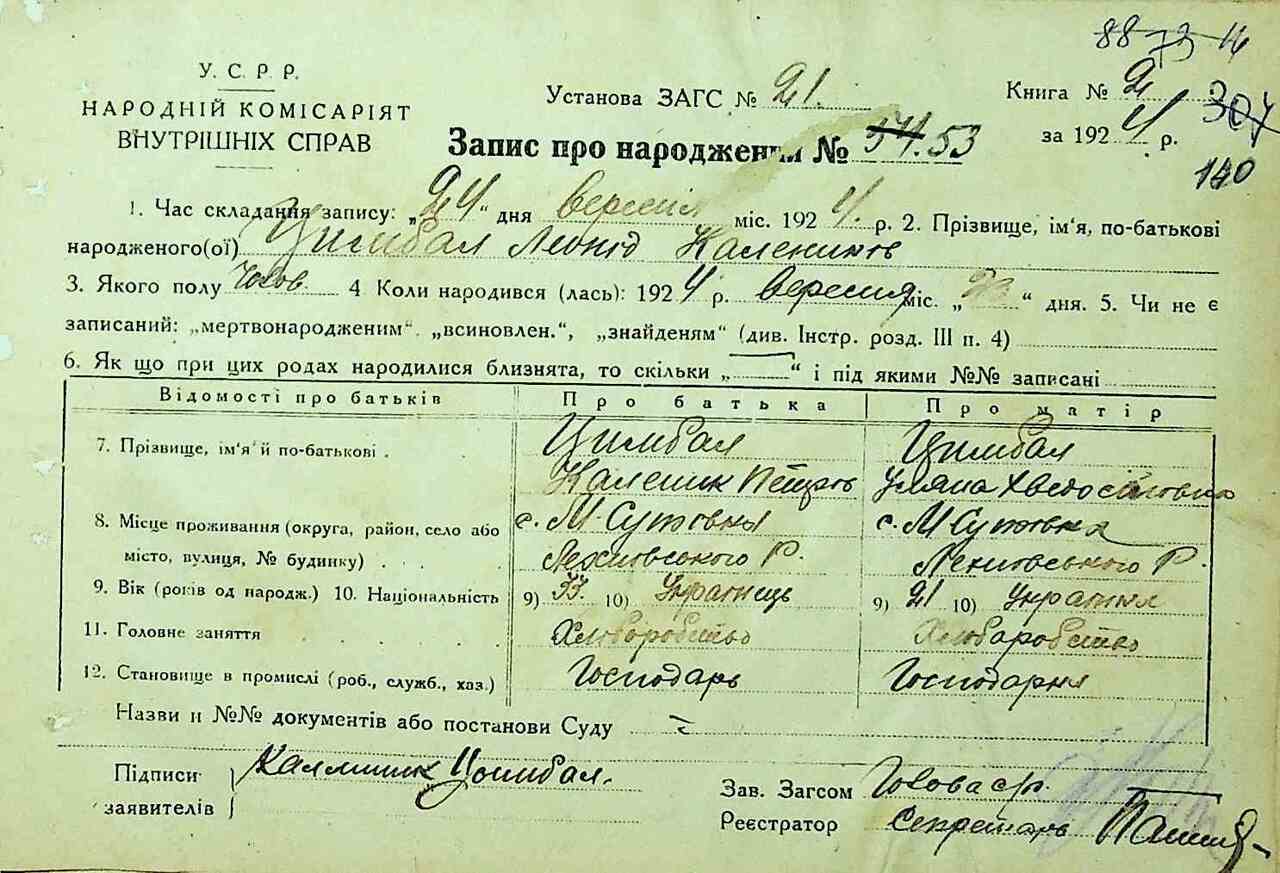 88 73 14
У. С. Р. Р.
НАРОДНІЙ КОМІСАРІЯТ
ВНУТРІШНІХ СПРАВ
Установа ЗАГС № 21.
Книга № 2
307
за 1924 р.
140
Запис про народження № 54. 53
1. Час складання запису: „24“ дня вересня міс. 1924 р. 2. Прізвище, ім'я, по-батькові
народженого(ої) Цимбал Леонід Калеників
3. Якого полу Чолов. 4 Коли народився (лась): 1924 р. вересня міс. „23“ дня. 5. Чи не є
записаний: „мертвонародженим“. „всиновлен.“, „знайденям“ (див. Інстр. розд. III п. 4)
6. Як що при цих родах народилися близнята, то скільки „—“ і під якими №№ записані
Відомості про батьків Про батька Про матір
7. Прізвище, ім'я й по-батькові . Цимбал Цимбал
Каленик Петров Уляна Хведосіовна
8. Місце проживання (округа, район, село або с. М-Сутовка с. М Сутовка
місто, вулиця, № будинку) . . Р. Р.
9. Вік (років од народж.) 10. Національність 9) 33 10) Українець 9) 21 10) Українка
11. Головне заняття Хлиборобство Хлібаробство
12. Становище в промислі (роб., служб., хаз.) Господарь Господарка
Назви и №№ документів або постанови Суду
Підписи заявителів Каллиник Цоимбал.
Зав. Загсом Голова с/р.
Реєстратор Секретарь